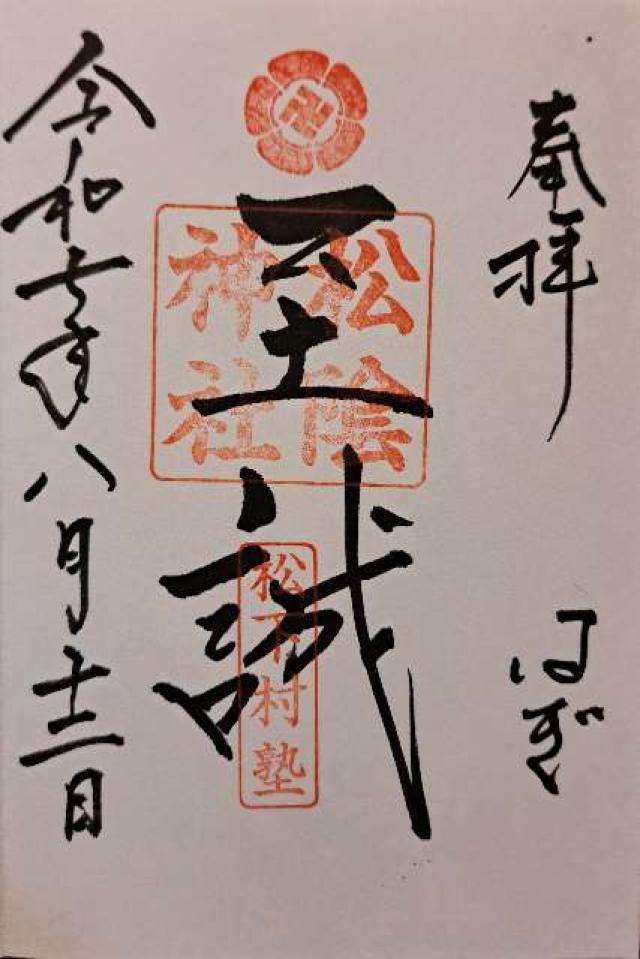 奉拝
はぎ
至誠
松陰神社
松下村塾
令和七年八月十二日